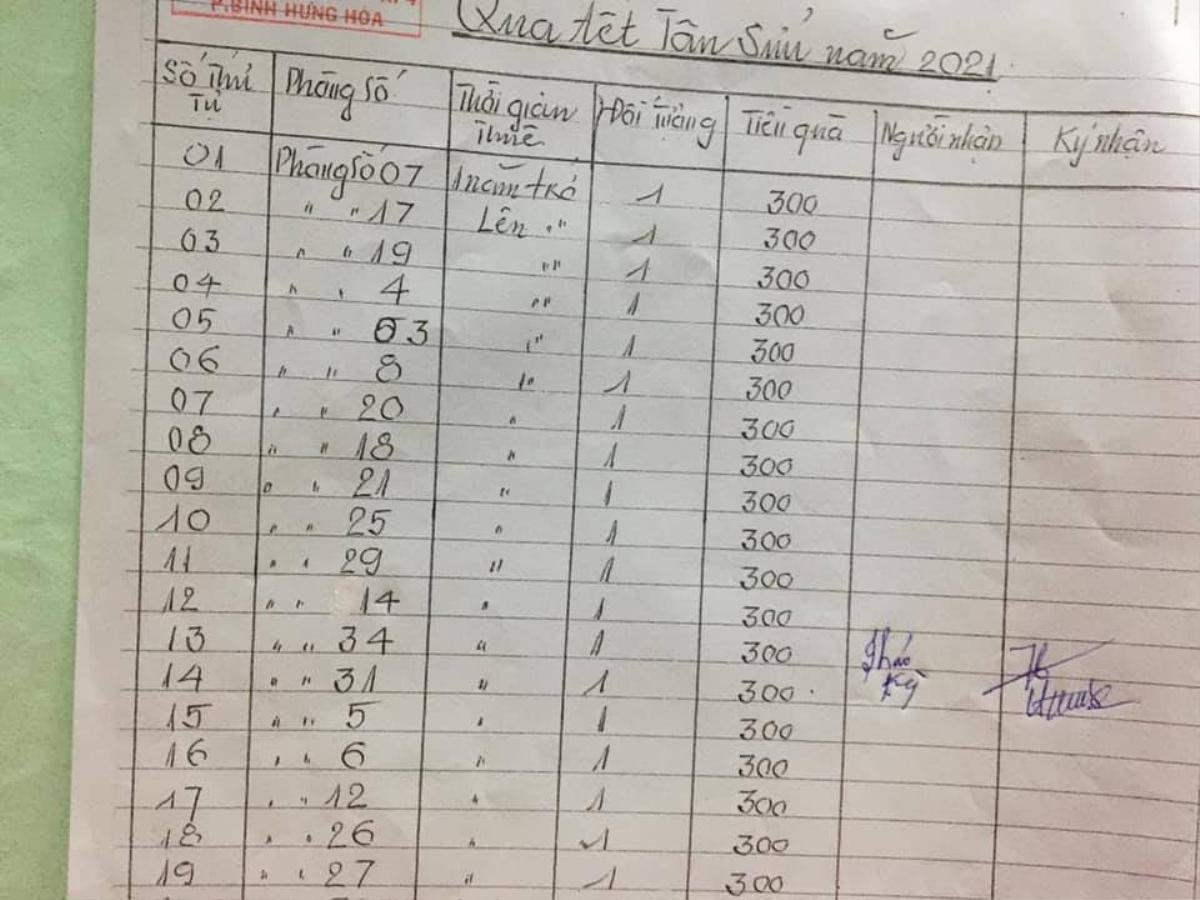 P.BÌNH HƯNG HÒA
Quà tết Tân Sửu năm 2021
Số Thứ Tự Phòng Số Thời gian Thuê Đối tượng Tiền quà Người nhận Ký nhận
01 Phòng Số 07 1 năm trở Lên 1 300
02 " " 17 " 1 300
03 " " 19 " 1 300
04 " " 4 " 1 300
05 " " 03 " 1 300
06 " " 8 " 1 300
07 " " 20 " 1 300
08 " " 18 " 1 300
09 " " 21 " 1 300
10 " " 25 " 1 300
11 " " 29 " 1 300
12 " " 14 " 1 300
13 " " 34 " 1 300 Thảo
14 " " 31 " 1 300 Kỳ
15 " " 5 " 1 300
16 " " 6 " 1 300
17 " " 12 " 1 300
18 " " 26 " 1 300
19 " " 27 " 1 300